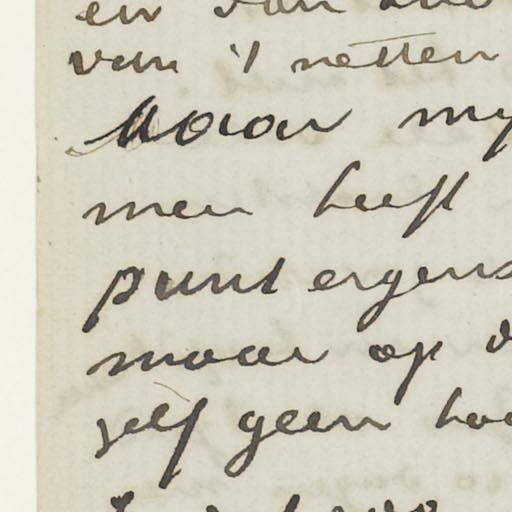 en van
van 't netten
Maar my
men heeft
punt ergens
maar op d
zelf geen